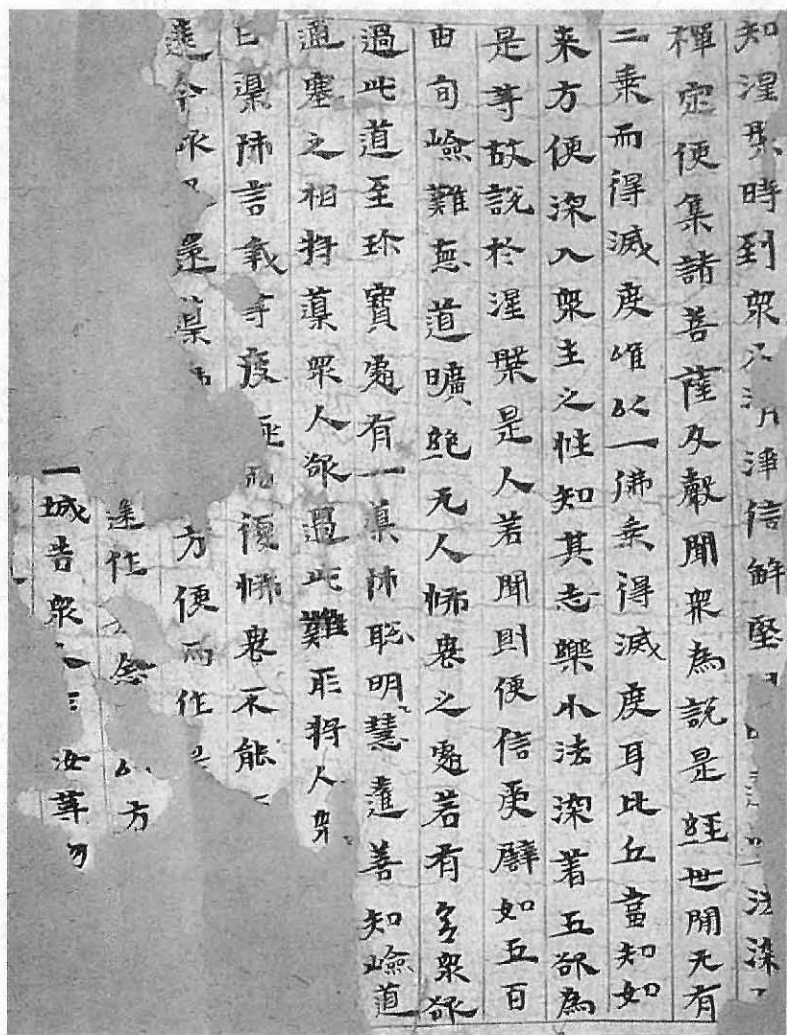 知涅槃時到眾淨信解堅法深
禪定便集諸菩薩及聲聞眾為說是經世間无有
二乘而得滅度唯以一佛乘得滅度耳比丘當知如
来方便深入眾生之性知其志樂小法深著五欲為
是等故說於涅槃是人若聞則便信受譬如五百
由旬嶮難惡道曠絕无人怖畏之處若有多眾欲
過此道至珍寶處有一導師聡明慧達善知嶮道
通塞之相將導眾人欲過此難所將人眾
導師言我等疲極而復怖畏不能
進今還導方便而作
作念方
一城告眾汝等